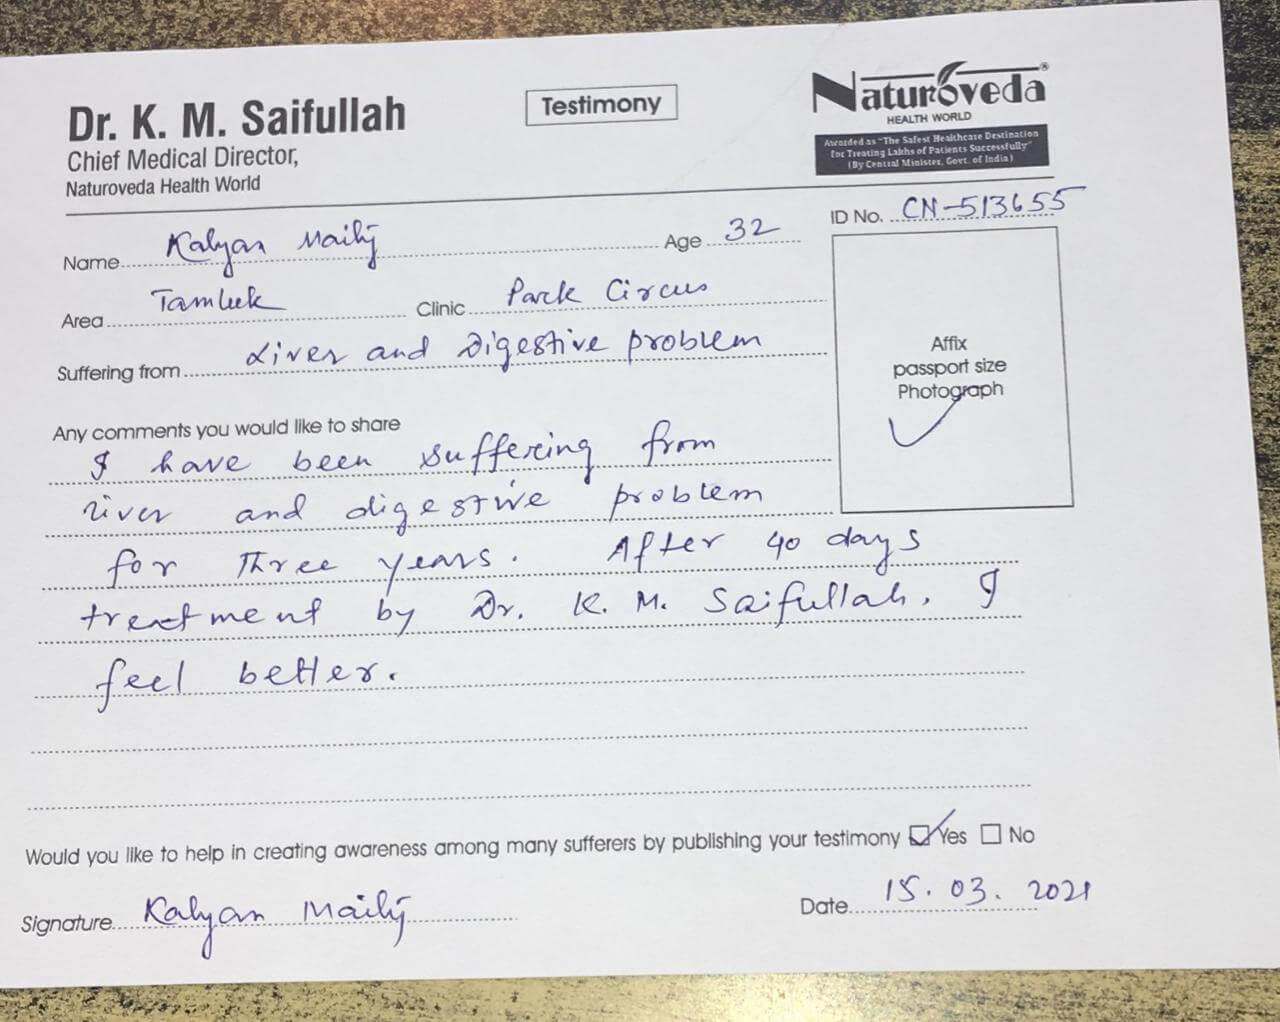 Dr. K. M. Saifullah
Chief Medical Director,
Naturoveda Health World
Testimony
Naturoveda®
HEALTH WORLD
Awarded as "The Safest Healthcare Destination
for Treating Lakhs of Patients Successfully"
(By Central Minister, Govt. of India)
ID No. CN-513655
Name Kalyan Maity Age 32
Area Tamluk Clinic Park Circus
Suffering from Liver and Digestive problem
Affix
passport size
Photograph
Any comments you would like to share
I have been suffering from
liver and digestive problem
for three years. After 40 days
treatment by Dr. K. M. Saifullah, I
feel better.
Would you like to help in creating awareness among many sufferers by publishing your testimony Yes No
Signature Kalyan Maity Date 15.03.2021